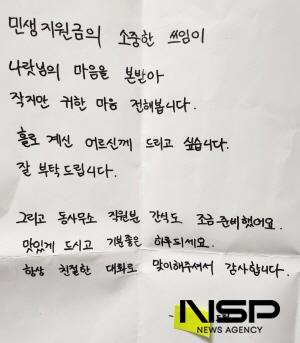 민생지원금의 소중한 쓰임이
나랏님의 마음을 본받아
작지만 귀한 마음 전해봅니다.
홀로 계신 어르신께 드리고 싶습니다.
잘 부탁드립니다.
그리고 동사무소 직원분 간식도 조금 준비했어요.
맛있게 드시고 기분좋은 하루되세요.
항상 친절한 대화로 맞이해주셔서 감사합니다.
NSP
NEWS AGENCY